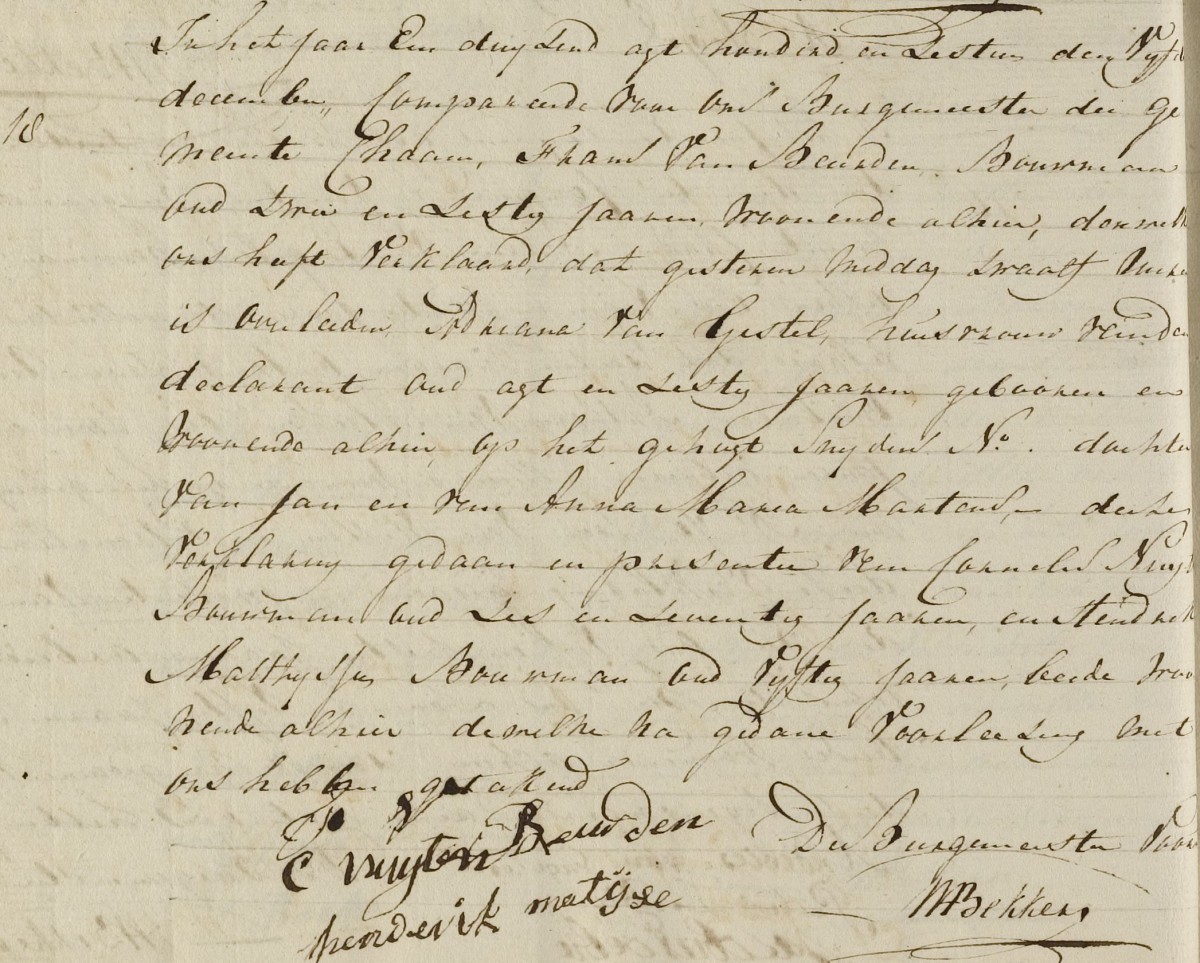 In het jaar Een duyzend agt hondird en Zestien den Vyfd
december, Compareerde Voor ons Burgemeester der ge
18
meente Chaam, Frans Van Beurden, Bouwman
oud Drie en Zestig jaaren, woonende alhier, denwelk
ons heeft Verklaard, dat gisteren middag twaalf Uure
is overleeden, Adriana Van Gestel, huisvrouw van den
declarant oud agt en Zestig jaaren gebooren en
woonende alhier, op het gehugt Snyders No. dochter
Van Jan en van Anna Maria Martens, deeze
Verklaring gedaan en presentie van Cornelis Nuyt
Bouwman oud Zes en Zeventig jaaren, en Hendrik
Matthyssen Bouwman oud Vyftig jaaren, beide woo
nende alhier dewelke na gedane Voorleezing met
ons hebben getekend
Beurden
C nuyten
henderik matijse
Der Burgemeester Voor
MBekkers